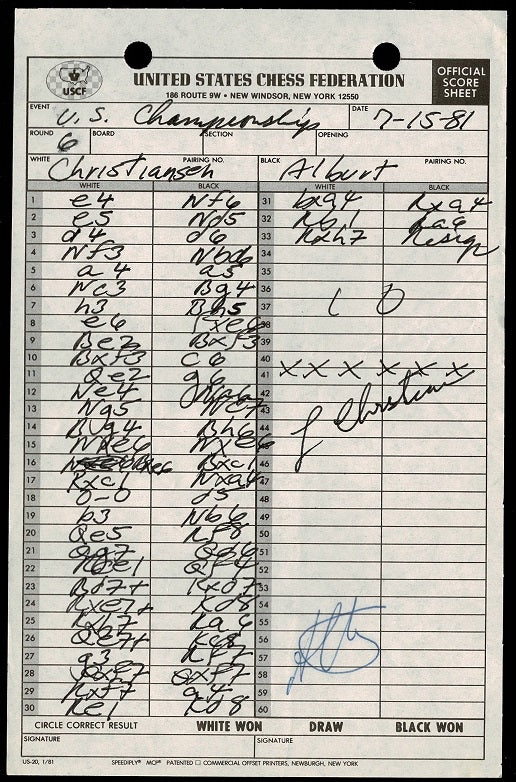 USCF
UNITED STATES CHESS FEDERATION
186 ROUTE 9W • NEW WINDSOR, NEW YORK 12550
OFFICIAL
SCORE
SHEET
EVENT U.S. Championship DATE 7-15-81
ROUND 6 BOARD SECTION OPENING
WHITE Christiansen PAIRING NO. BLACK Alburt PAIRING NO.
WHITE BLACK WHITE BLACK
1 e4 Nf6 31 bxa4 Rxa4
2 e5 Nd5 32 Rb1 Ra6
3 d4 d6 33 Rxh7 Resign
4 Nf3 Nb6 34
5 a4 a5 35
6 Nc3 Bg4 36
7 h3 Bh5 37 1 0
8 e6 fxe6 38
9 Be2 Bxf3 39
10 Bxf3 c6 40
11 Qe2 g6 41 x x x x x x
12 Ne4 42
13 Ng5 Nc7 43 L Christian
14 Bg4 Bh6 44
15 Nxe6 Nxe6 45
16 Bxe6 Bxc1 46
17 Rxc1 Nxa4 47
18 0-0 d5 48
19 b3 Nb6 49
20 Qe5 Rf8 50
21 Qg7 Qd6 51
22 Rce1 Qf4 52
23 Bd7+ Kxd7 53
24 Rxe7+ Kd8 54
25 Rxb7 Ra6 55
26 Qe7+ Kc8 56
27 g3 Rf7 57
28 Qxf7 Qxf7 58
29 Rxf7 g4 59
30 Re1 Kd8 60
CIRCLE CORRECT RESULT WHITE WON DRAW BLACK WON
SIGNATURE SIGNATURE
US-20, 1/81 SPEEDIPLY® MCP® PATENTED □ COMMERCIAL OFFSET PRINTERS, NEWBURGH, NEW YORK